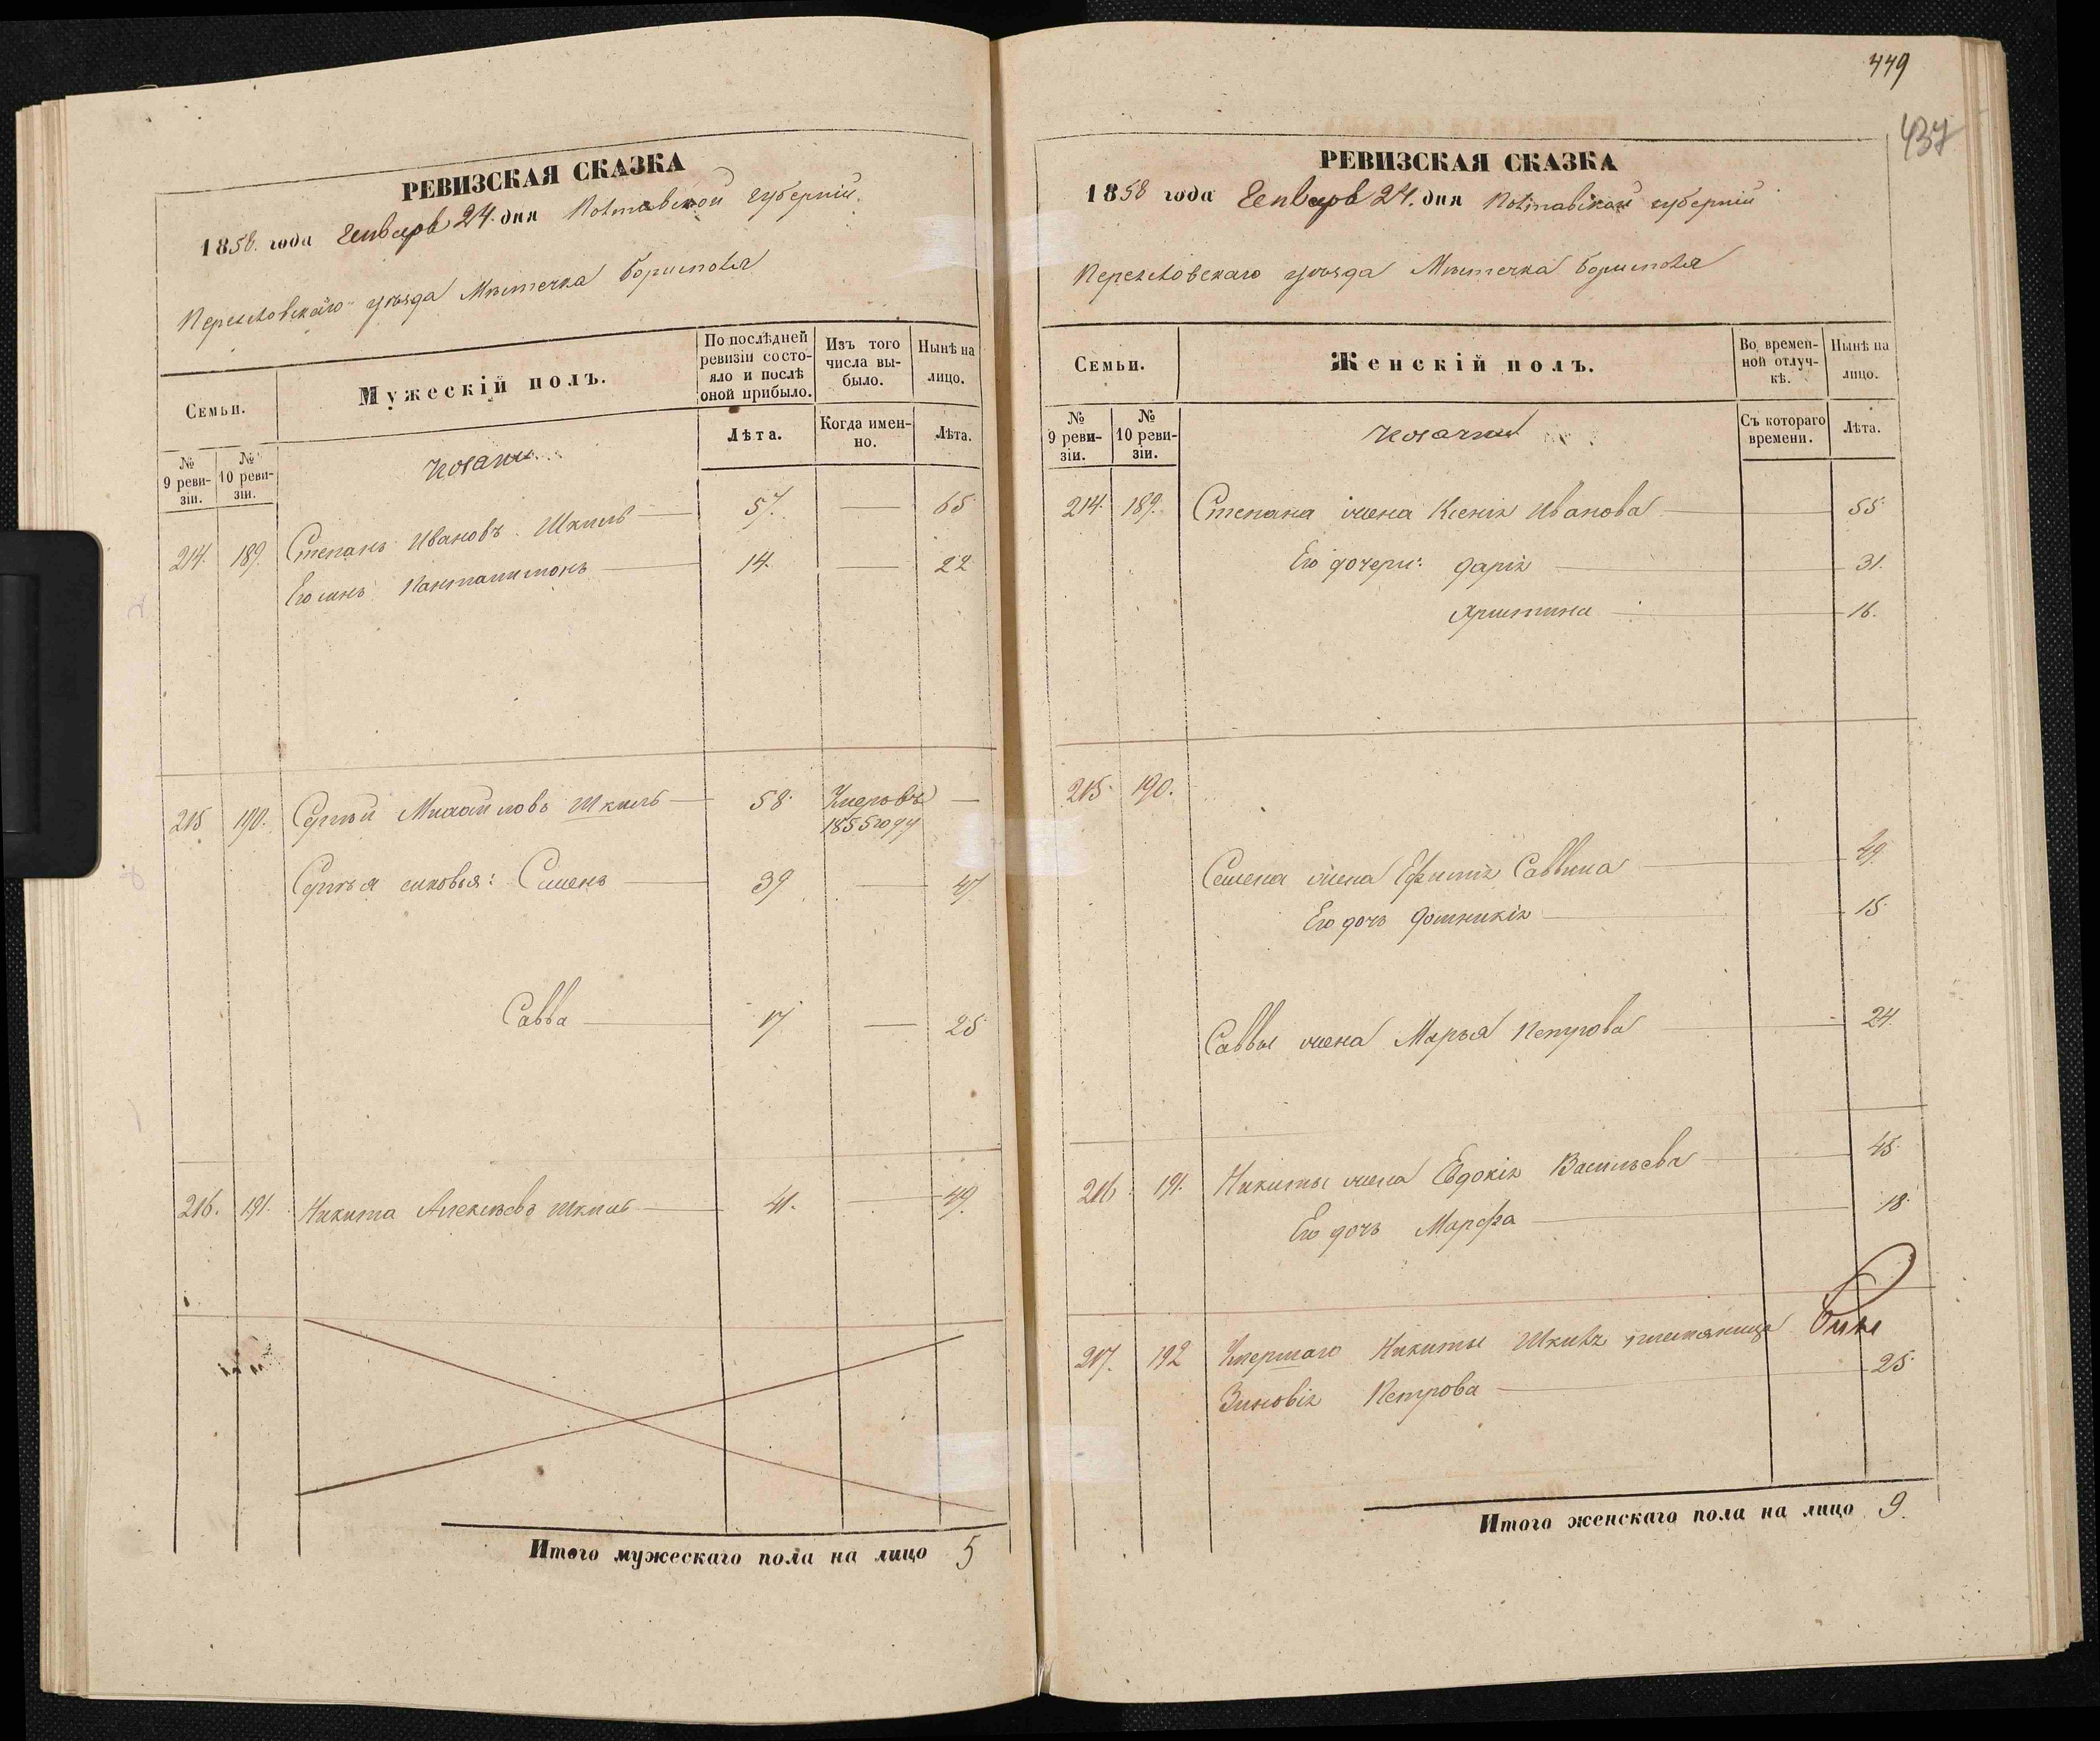 РЕВИЗСКАЯ СКАЗКА
1858. года Генваря 24. дня Полтавской губерніи.
Переяславскаго уѣзда Мѣстечка Борисполя
Семьи.
Мужескій полъ.
По послѣдней ревизіи состояло и послѣ оной прибыло.
Изъ того числа выбыло.
Нынѣ на лицо.
№ 9 ревизіи.
№ 10 ревизіи.
Лѣта.
Когда именно.
Лѣта.
Козаки
214. 189. Степанъ Ивановъ Шкиль 57. — 65
Его сынъ Пантелимонъ 14. — 22
215 190. Сергѣй Михайловъ Шкиль 58. Умеръ въ —
1855 году
Сергѣя сыновья: Семенъ 39 — 47
Савва 17 — 25
216. 191. Никита Алексѣевъ Шкиль 41. — 49.
Итого мужескаго пола на лицо 5
449
437
РЕВИЗСКАЯ СКАЗКА
1858 года Генваря 24. дня Полтавской губерніи
Переяславскаго уѣзда Мѣстечка Борисполя
Семьи.
Женскій полъ.
Во временной отлучкѣ.
Нынѣ на лицо.
№ 9 ревизіи.
№ 10 ревизіи.
Съ котораго времени.
Лѣта.
Козачки
214. 189. Степана жена Ксенія Иванова 55
Его дочери: Дарія 31.
Христина 16.
215. 190.
Семена жена Ефимія Саввина 49.
Его дочь Домникія 15.
Саввы жена Марья Петрова 24.
216. 191. Никиты жена Евдокія Васильева 45.
Его дочь Марфа 18.
217. 192 Умершаго Никиты Шкиля племянница
Зиновія Петрова 25.
Итого женскаго пола на лицо 9.